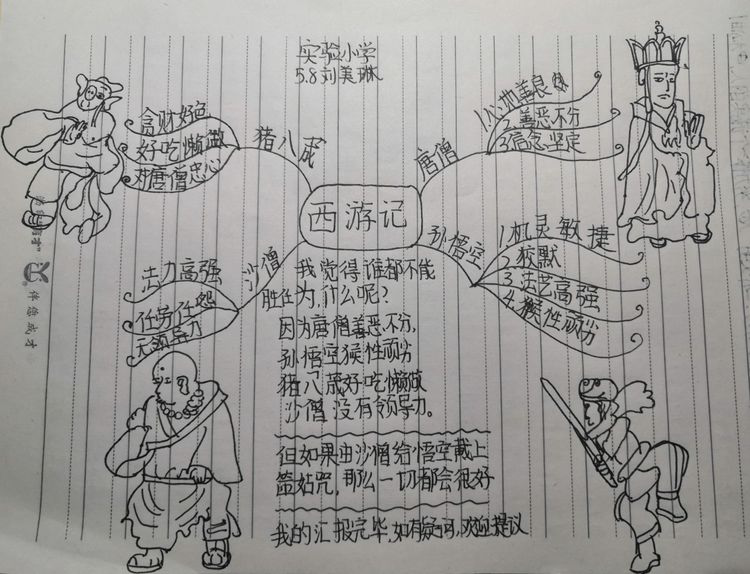 实验小学
5.8刘美琳
猪八戒
贪财好色
好吃懒做
对唐僧忠心
唐僧
1.心地善良
2.善恶不分
3.信念坚定
西游记
沙僧
法力高强
任劳任怨
无领导力
孙悟空
1.机灵敏捷
2.狡黠
3.法艺高强
4.猴性顽劣
我觉得谁都不能
胜任为,什么呢?
因为唐僧善恶不分,
孙悟空猴性顽劣
猪八戒好吃懒做
沙僧没有领导力。
但如果由沙僧给悟空戴上
箍咒,那么一切都会很好
我的汇报完毕,如有疑问,欢迎提议
伴您成才